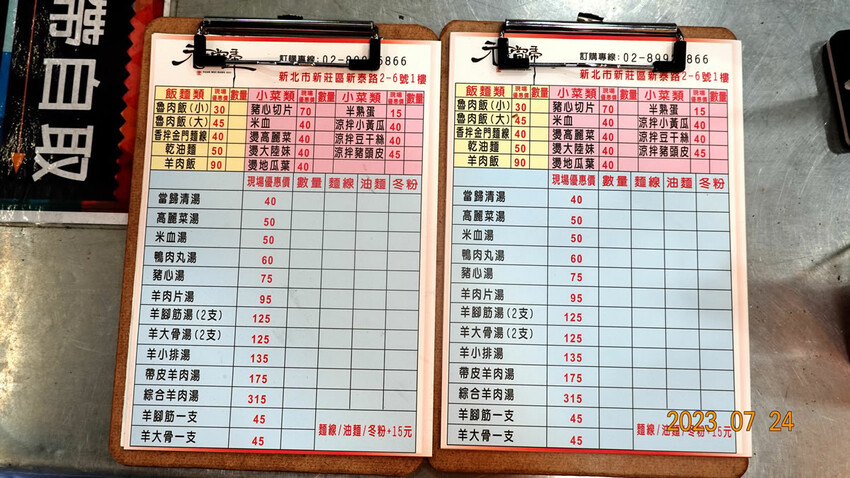 帶自取
訂購專線:02-89 5866
新北市新莊區新泰路2-6號1樓
飯麵類 現場優惠價 數量 小菜類 現場優惠價 數量 小菜類 現場優惠價 數量
魯肉飯(小) 30 豬心切片 70 半熟蛋 15
魯肉飯(大) 45 米血 40 涼拌小黃瓜 40
香拌金門麵線 40 燙高麗菜 40 涼拌豆干絲 40
乾油麵 50 燙大陸妹 40 涼拌豬頭皮 45
羊肉飯 90 燙地瓜葉 40
現場優惠價 數量 麵線 油麵 冬粉
當歸清湯 40
高麗菜湯 50
米血湯 50
鴨肉丸湯 60
豬心湯 75
羊肉片湯 95
羊腳筋湯(2支) 125
羊大骨湯(2支) 125
羊小排湯 135
帶皮羊肉湯 175
綜合羊肉湯 315
羊腳筋一支 45
羊大骨一支 45
麵線/油麵/冬粉+15元
訂購專線:02-899 866
新北市新莊區新泰路2-6號1樓
飯麵類 現場優惠價 數量 小菜類 現場優惠價 數量 小菜類 現場優惠價 數量
魯肉飯(小) 30 豬心切片 70 半熟蛋 15
魯肉飯(大) 45 米血 40 涼拌小黃瓜 40
香拌金門麵線 40 燙高麗菜 40 涼拌豆干絲 40
乾油麵 50 燙大陸妹 40 涼拌豬頭皮 45
羊肉飯 90 燙地瓜葉 40
現場優惠價 數量 麵線 油麵 冬粉
當歸清湯 40
高麗菜湯 50
米血湯 50
鴨肉丸湯 60
豬心湯 75
羊肉片湯 95
羊腳筋湯(2支) 125
羊大骨湯(2支) 125
羊小排湯 135
帶皮羊肉湯 175
綜合羊肉湯 315
羊腳筋一支 45
羊大骨一支 45
麵線/油麵/冬粉+15元
2023 07 24